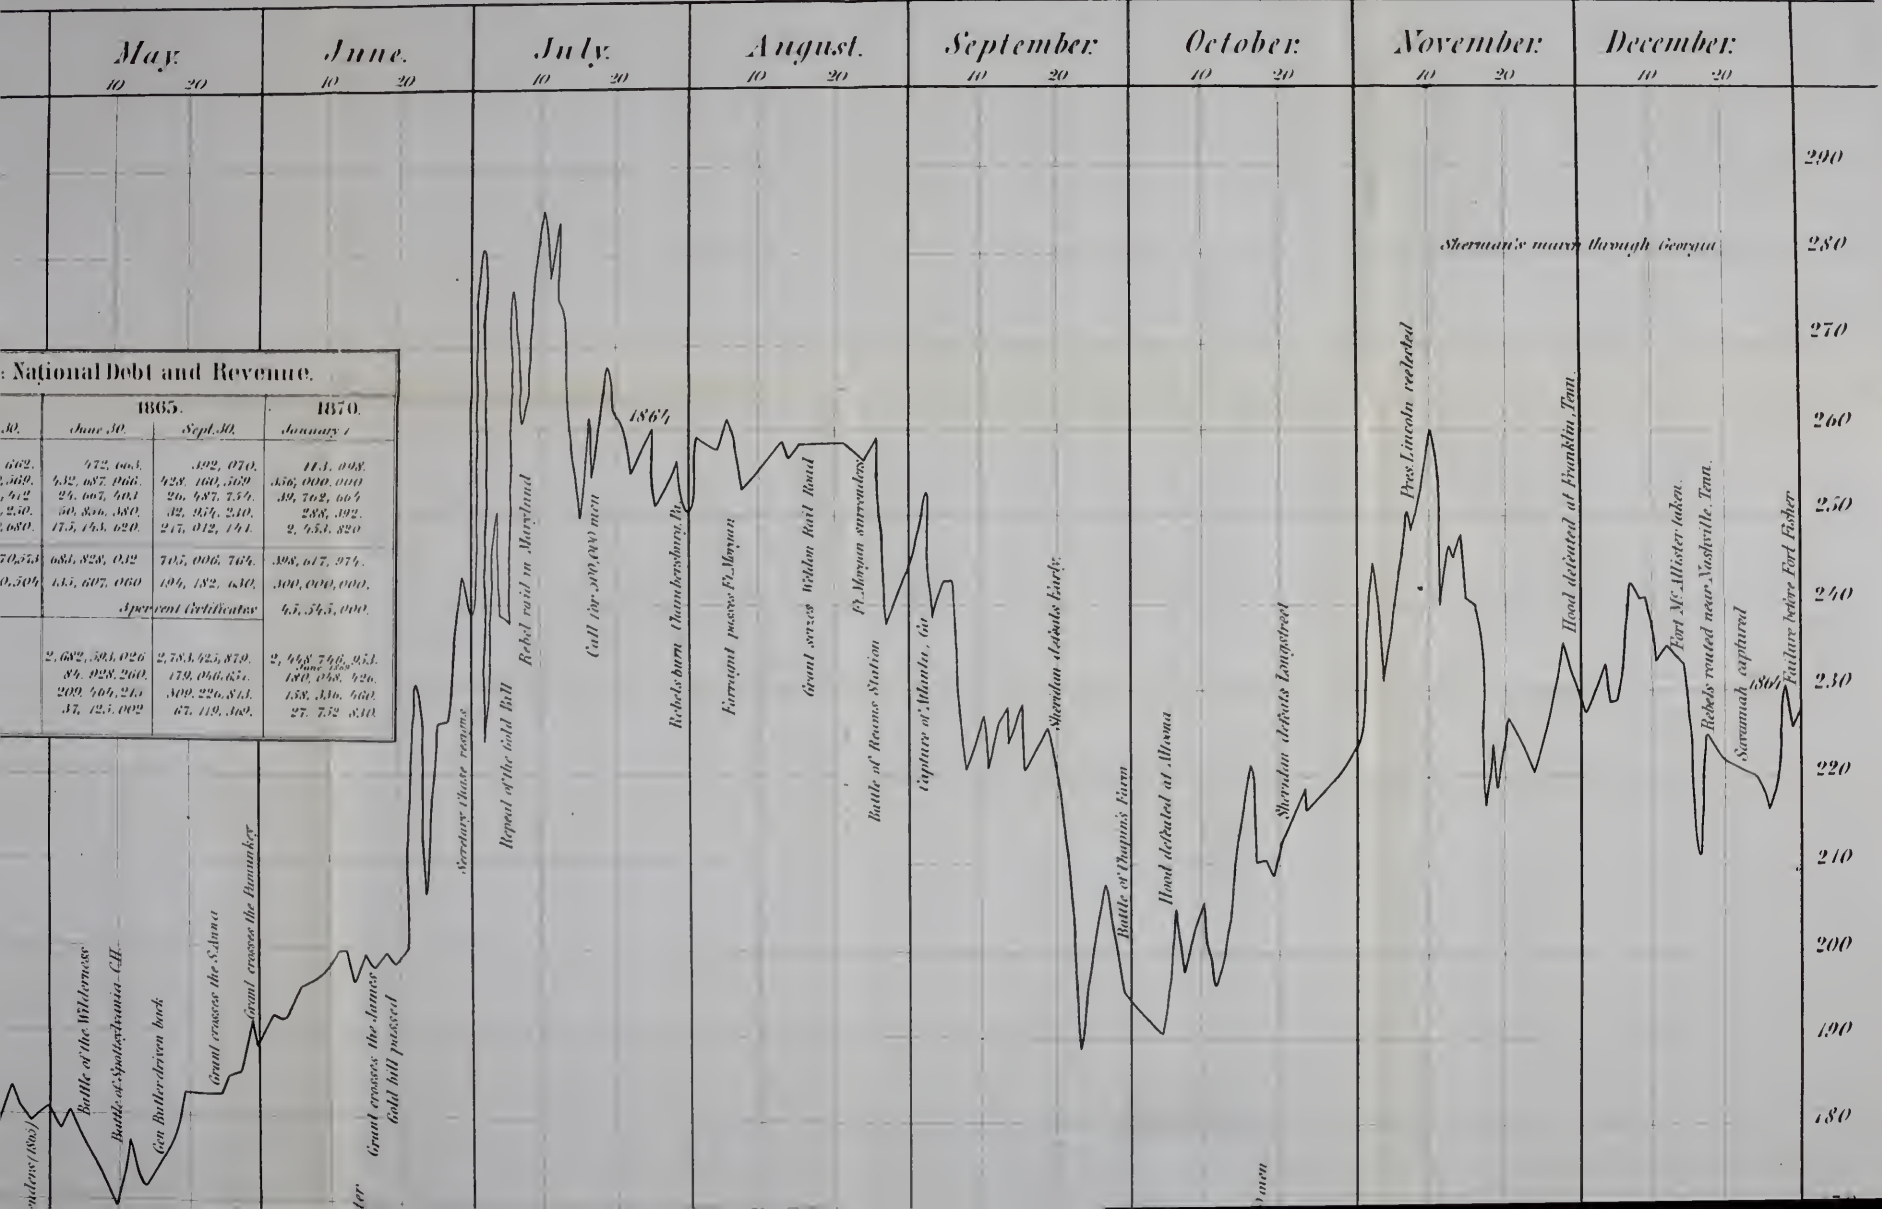 May. June. July. August. September. October. November. December.
10 20 10 20 10 20 10 20 10 20 10 20 10 20 10 20
290
280
270
260
250
240
230
220
210
200
190
180
: National Debt and Revenue.
1865. 1870.
30. June 30. Sept. 30. January 1
662. 472, 603. 392, 070. 113. 098.
,569. 432, 687, 966. 428, 160, 569 356, 000, 000
,412 24, 667, 403 26, 487, 754. 39, 762, 664
,250. 50, 856, 380. 32, 954, 230. 288, 392.
,680. 175, 143, 620. 217, 012, 141. 2, 453, 820
70,573 683, 828, 032 705, 006, 764. 398, 617, 974.
0,504 135, 607, 060 194, 182, 630. 300, 000, 000.
3 per cent Certificates 45, 545, 000.
2, 682, 593, 026 2, 783, 425, 879. 2, 448, 746, 953.
June 1869
84, 928, 260. 179, 046, 651. 180, 048, 426.
209, 464, 215 309, 226, 813. 158, 336, 460.
37, 125, 002 67, 119, 369. 27, 752, 830.
Battle of the Wilderness
Battle of Spottsylvania C.H.
Gen Butler driven back
Grant crosses the S. Anna
Grant crosses the Pamunkey
Grant crosses the James
Gold bill passed
Secretary Chase resigns
Repeal of the Gold Bill
Rebel raid in Maryland
Call for 500,000 men
1864
Rebels burn Chambersburg, Pa.
Farragut passes Ft. Morgan
Grant seizes Weldon Rail Road
Ft. Morgan surrenders
Battle of Reams Station
Capture of Atlanta, Ga
Sheridan defeats Early.
Battle of Chapin's Farm
Hood defeated at Altoona
Sheridan defeats Longstreet
Pres. Lincoln reelected
Sherman's march through Georgia
Hood defeated at Franklin, Tenn.
Fort Mc Allister taken.
Rebels routed near Nashville. Tenn.
Savannah captured
1864
Failure before Fort Fisher
enders (1865)
ter
men